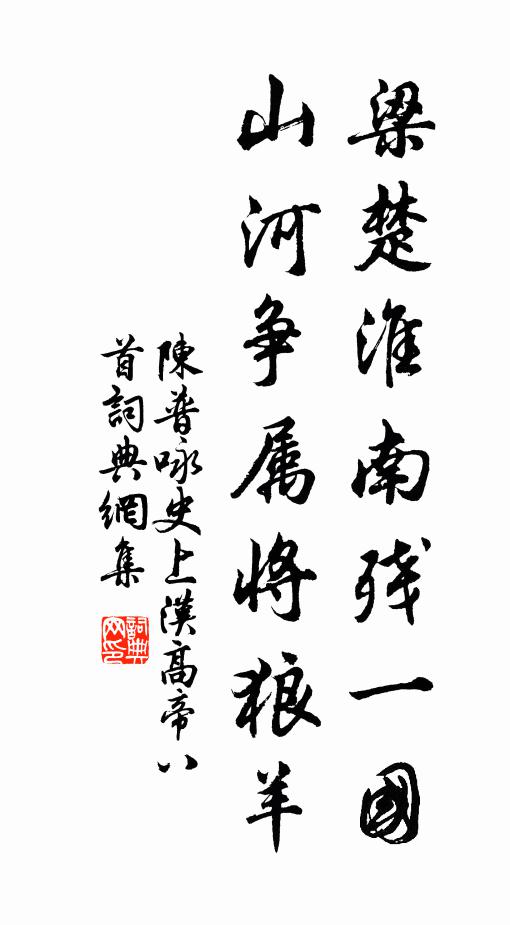 梁楚淮南残一國
山河争属将狼羊
陳普咏史上漢高帝八
首詞典網集
詞典
网印